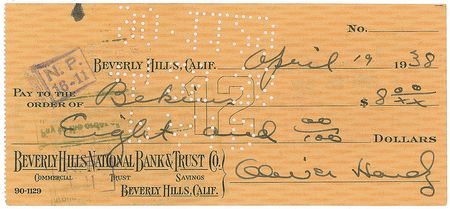 No.
BEVERLY HILLS, CALIF. April 19 1938
N. P.
PAY TO THE
ORDER OF Bekins $8 00/xx
12
Eight and 00/100 DOLLARS
BEVERLY HILLS NATIONAL BANK & TRUST CO.
COMMERCIAL TRUST SAVINGS
90-1129 BEVERLY HILLS, CALIF.
Oliver Hardy